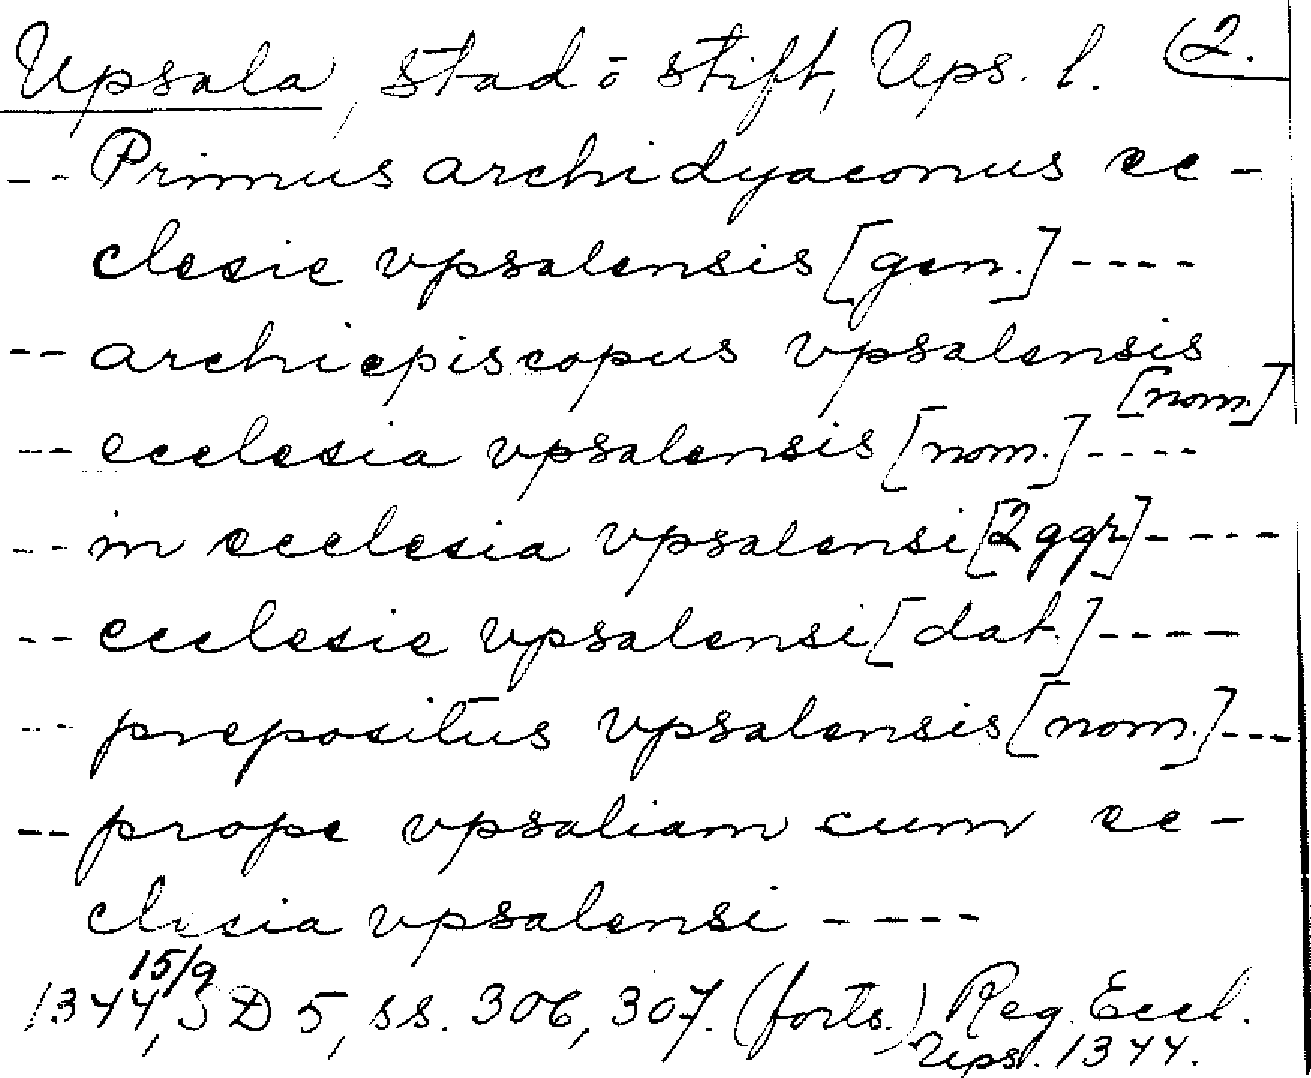 Upsala, stad o stift, Ups. l. (2.
-- Primus archidyaconus ec-
clesie vpsalensis [gen.] ----
-- archiepiscopus vpsalensis
[nom.]
-- ecclesia vpsalensis [nom.] ----
-- in ecclesia vpsalensi [2 ggr] ----
-- ecclesie vpsalensi [dat.] ----
-- prepositus vpsalensis [nom.] ---
-- prope vpsaliam cum ec-
clesia vpsalensi ----
15/9
1344, SD 5, ss. 306, 307. (forts.) Reg. Eccl.
Ups. 1344.